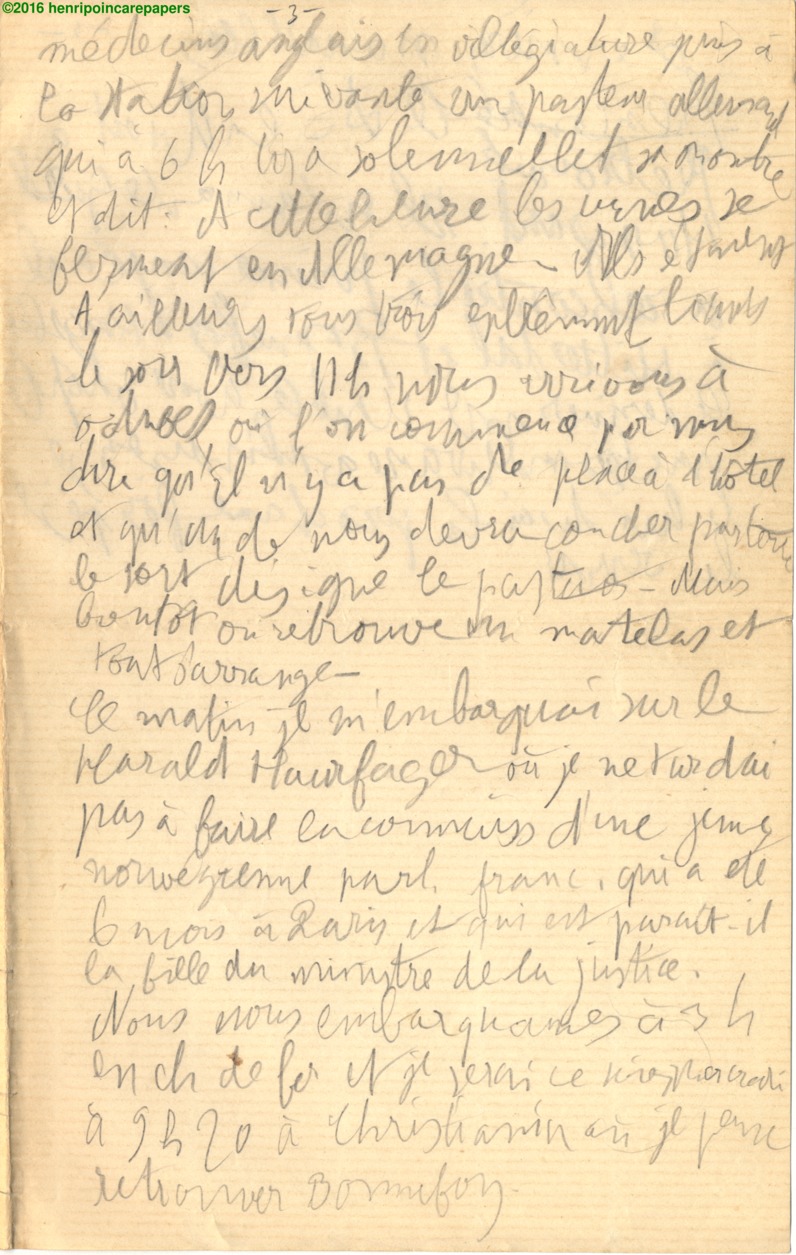 ©2016 henripoincarepapers
-3-
médecins anglais en villégiature puis à
la station suivante un pasteur allemand
qui à 6 h tira solennellet sa montre
et dit: A cette heure les urnes se
ferment en Allemagne - Ils étaient
d'ailleurs tous trois extrêmmt
le soir vers 11h nous arrivons à
où l'on commence par nous
dire qu'il n'y a pas de place à l'hôtel
et qu'un de nous devra coucher par terre
le sort désigne le pasteur - Mais
bientôt on retrouve un matelas et
tout s'arrange -
Ce matin je m'embarquai sur le
Harald Haarfager où je ne tardai
pas à faire la connaiss d'une jeune
norvégienne parl. franc. qui a été
6 mois à Paris et qui est paraît-il
la fille du ministre de la justice.
Nous nous embarquames à 3 h
en ch de fer et je serai ce soir
à 9 h 20 à Christiania où je pense
retrouver Bonnefoy